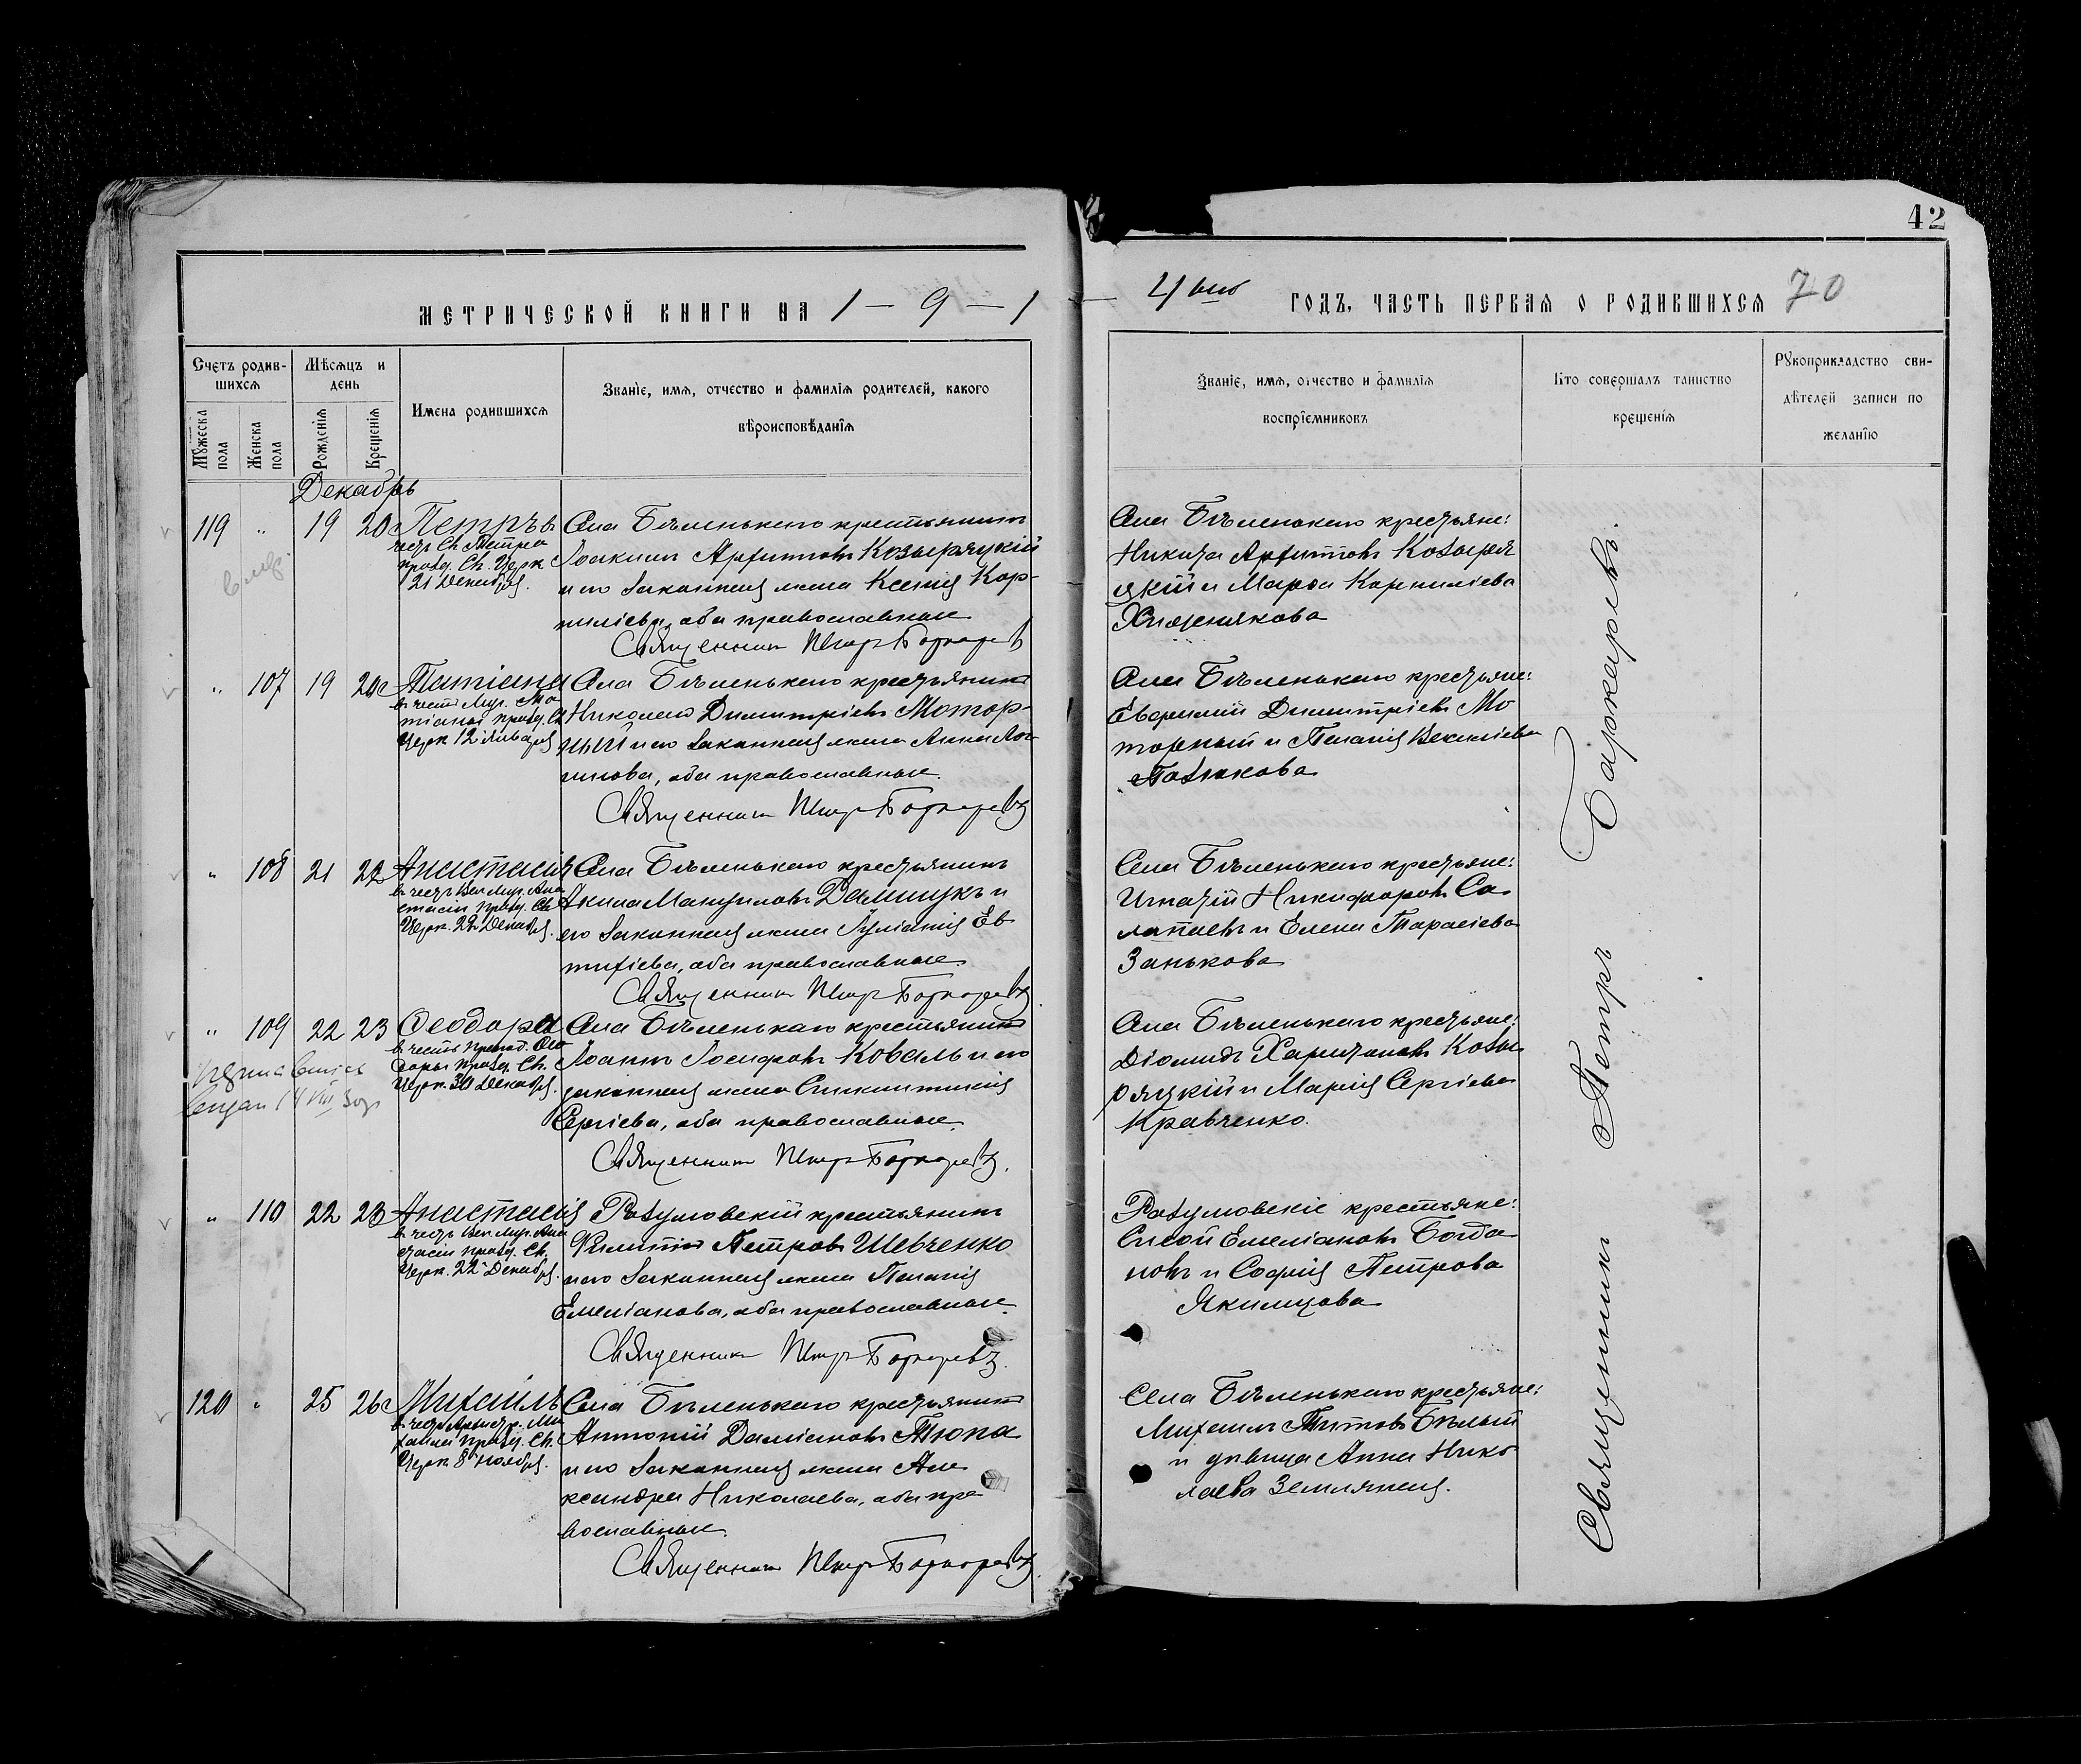 42
МЕТРИЧЕСКОЙ КНИГИ НА 1 — 9 — 1
4 ый ГОДЪ, ЧАСТЬ ПЕРВАЯ О РОДИВШИХСЯ 70
Счетъ родив-
шихся
Мужеска пола
Женска пола
Мѣсяцъ и
день
Рожденія
Крещенія
Имена родившихся
Званіе, имя, отчество и фамилія родителей, какого
вѣроисповѣданія
Званіе, имя, отчество и фамилія
воспріемниковъ
Кто совершалъ таинство
крещенія
Рукоприкладство сви-
дѣтелей записи по
желанію
Декабрь
119 " 19 20 Петръ въ
честь Св. Петра
празд. Св. Церк
21 Декабря.
Села Бѣленькаго крестьянинъ
Іоакимъ Архиповъ Козыряцкій
и его законная жена Ксенія Кор-
ниліева, оба православные
Священникъ Петръ Боркаревъ
Села Бѣленькаго крестьяне:
Никита Архиповъ Козыря
цкій и Марѳа Корниліева
Хижнякова
" 107 19 20 Татіана
въ честь Муч. Та
тіаны празд. Св
Церк 12 Января
Села Бѣленькаго крестьянинъ
Николай Димитріевъ Мотор-
ный и его законная жена Анна Ло-
гинова, оба православные.
Священникъ Петръ Боркаревъ
Села Бѣленькаго крестьяне:
Евфимій Димитріевъ Мо
торный и Пелагія Василіева
Пазюкова
" 108 21 22 Анастасія
въ честь Вел. Муч. Ана
стасіи празд. Св.
Церк. 22 Декабр.
Села Бѣленькаго крестьянинъ
Акила Мануиловъ Демчукъ и
его законная жена Іуліанія Ев
тихіева, оба православные
Священникъ Петръ Боркаревъ
Села Бѣленькаго крестьяне:
Игнатій Никифоровъ Са
лапаевъ и Елена Тарасіева
Занькова
" 109 22 23 Ѳеодора
въ честь препод. Ѳео
доры празд. Св.
Церк. 30 Декабр.
Села Бѣленькаго крестьянинъ
Іоаннъ Іосифовъ Коваль и его
законная жена Синклитикія
Сергіева, оба православные.
Священникъ Петръ Боркаревъ.
Села Бѣленькаго крестьяне:
Діомидъ Харитоновъ Козы
ряцкій и Марія Сергіева
Кравченко.
" 110 22 23 Анастасія
въ честь Вел. Муч. Ана
стасіи празд. Св.
Церк. 22 Декабр.
Разумовскій крестьянинъ
Филиппъ Петровъ Шевченко
и его законная жена Пелагія
Емеліанова, оба православные.
Священникъ Петръ Боркаревъ.
Разумовскіе крестьяне:
Сисой Емеліановъ Богда
новъ и Софія Петрова
Якимцова
120 " 25 26 Михаилъ
въ честь Архистр. Ми
хаила празд. Св.
Церк 8 Ноября.
Села Бѣленькаго крестьянинъ
Антоній Даміановъ Тюпа
и его законная жена Але
ксандра Николаева, оба пра
вославные.
Священникъ Петръ Боркаревъ
Села Бѣленькаго крестьяне:
Михаилъ Титовъ Бѣлый
и дѣвица Анна Нико
лаева Земляная.
Священникъ Петръ Боркаревъ.